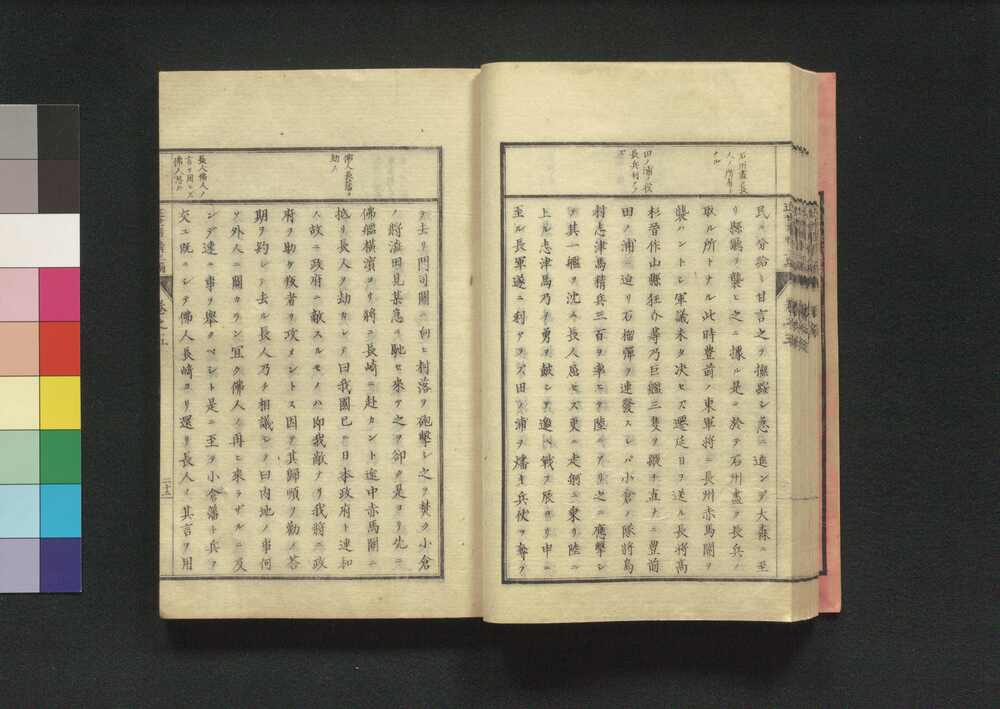 石州盡ク長
人ノ所有ト
ナル
田ノ浦ノ役
長兵利アラ
ズ
民ニ分給シ甘言之ヲ撫綏シ急ニ進ンデ大森ニ至
リ縣鶴ヲ襲ヒ之ニ據ル是ニ於テ石州盡ク長兵ノ
取ル所トナル此時豊前ノ東軍將ニ長州赤馬關ヲ
襲ハントシ軍議未タ決セズ遷延日ヲ送ル長將高
杉晉作山縣狂介等乃巨艦三隻ヲ艤テ直ナニ豊前
田ノ浦ニ迫リ石榴彈ヲ連發スレバ小倉ノ隊將島
村志津馬精兵三百ヲ率ヒテ陸ニアリ之ニ應擊シ
テ其一艦ヲ沈ム長人屈セズ更ニ走舸ニ乘リ陸ニ
上ル志津馬乃チ勇ヲ鼓シテ邀ヘ戰フ辰ヨリ申ニ
至ル長軍遂ニ利アラズ田ノ浦ヲ燔キ兵仗ヲ奪テ
佛人長藩ヲ
劫ス
長人佛人ノ
言ヲ用ヒズ
佛人怒ル
ヲ去リ門司關ニ向ヒ村落ヲ砲擊シ之ヲ焚ク小倉
ノ將澁田見某急ニ馳セ來テ之ヲ卻ク是ヨリ先ニ
佛艦橫濱ヨリ將ニ長崎ニ赴カントト途中赤馬關ニ
抛リ長人ヲ劫カシテ曰我國已ニ日本政府ト連和
ス故ニ政府ニ敵スルモノハ即我敵ナリ我將ニ政
府ヲ助ケ叛者ヲ攻メントス因ヲ其歸順ヲ勸ノ答
期ヲ約シテ去ル長人乃チ相議シテ曰内地ノ事何
ソ外人ニ關カラン冝ク佛人ノ再ヒ來ラザルニ及
ンデ速ニ事ヲ擧クベシト是ニ至ヲ小倉藩ト兵ヲ
交エ既ニシテ佛人長崎ヨリ還リ長人ノ其言ヲ用